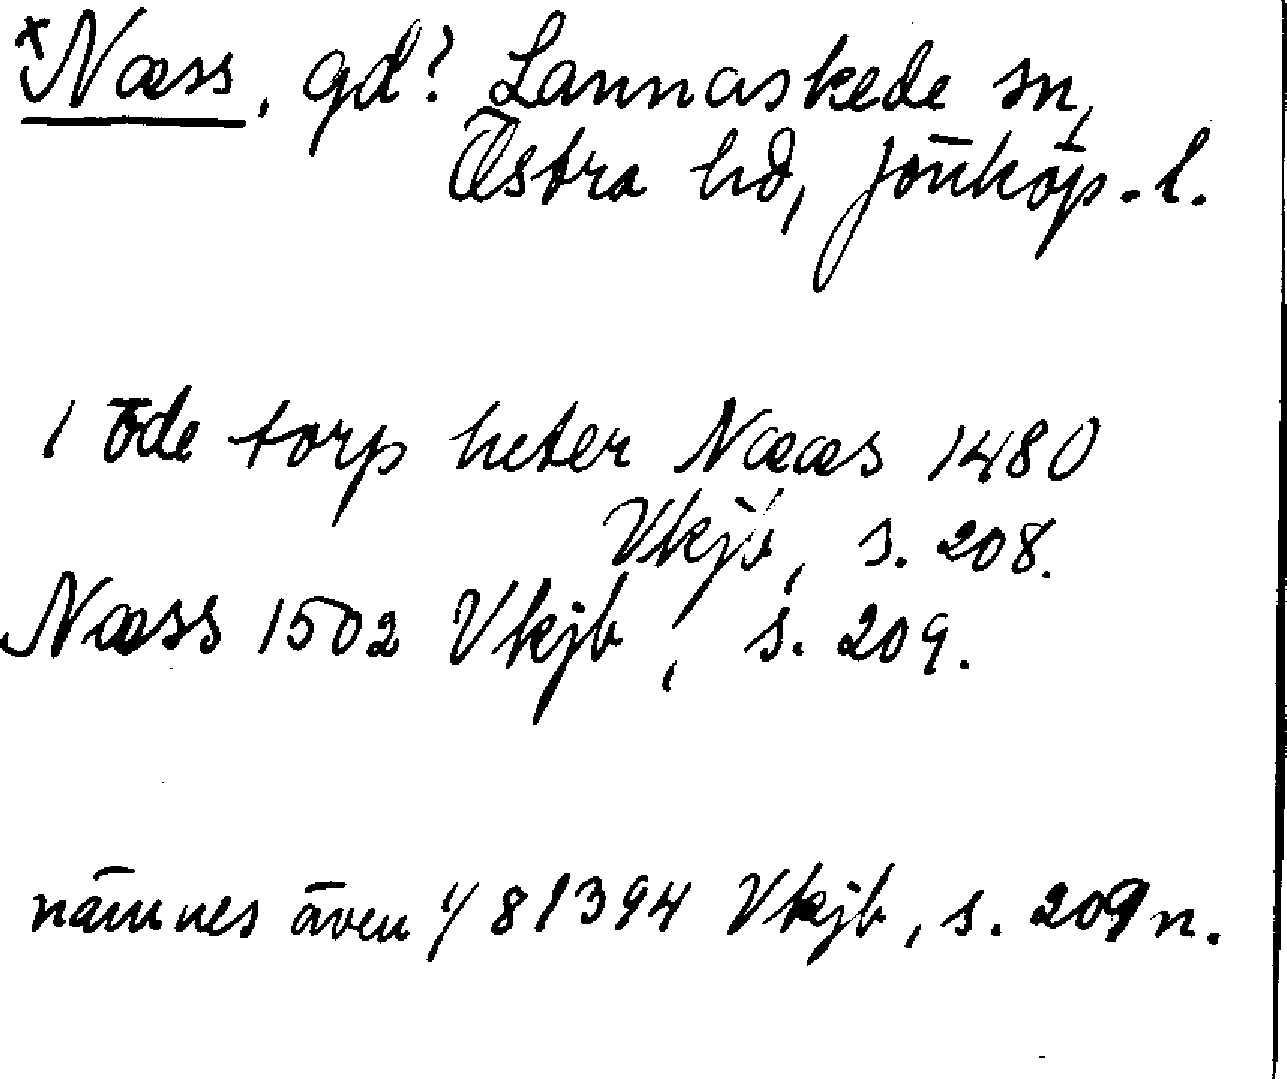 ×Næss, gd? Lannaskede sn,
Östra hd, Jönköp. l.
1 öde torp heter Nææs 1480
Vkjb, s. 208.
Næss 1502 Vkjb, s. 209.
nämnes även 7/8 1394 Vkjb, s. 209 n.